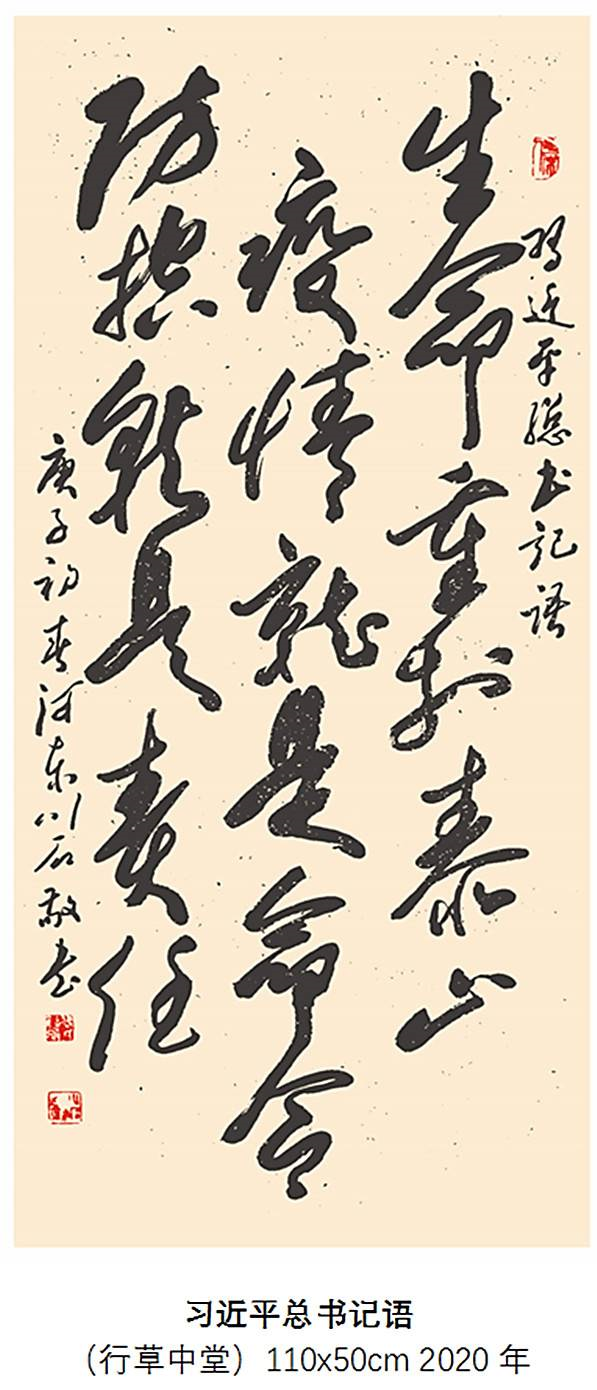 習近平總书記語
生命重於泰山
疫情就是命令
防控就是責任
庚子初春河东川石敬书
习近平总书记语
（行草中堂）110x50cm 2020 年